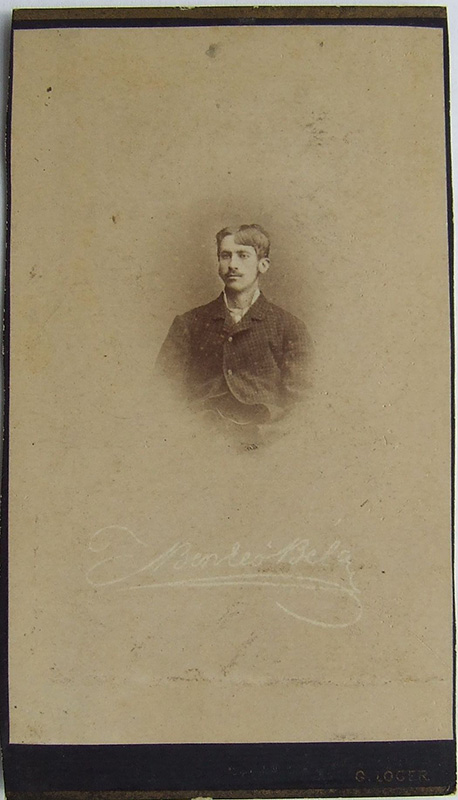 Benkő Béla
G. LOGER